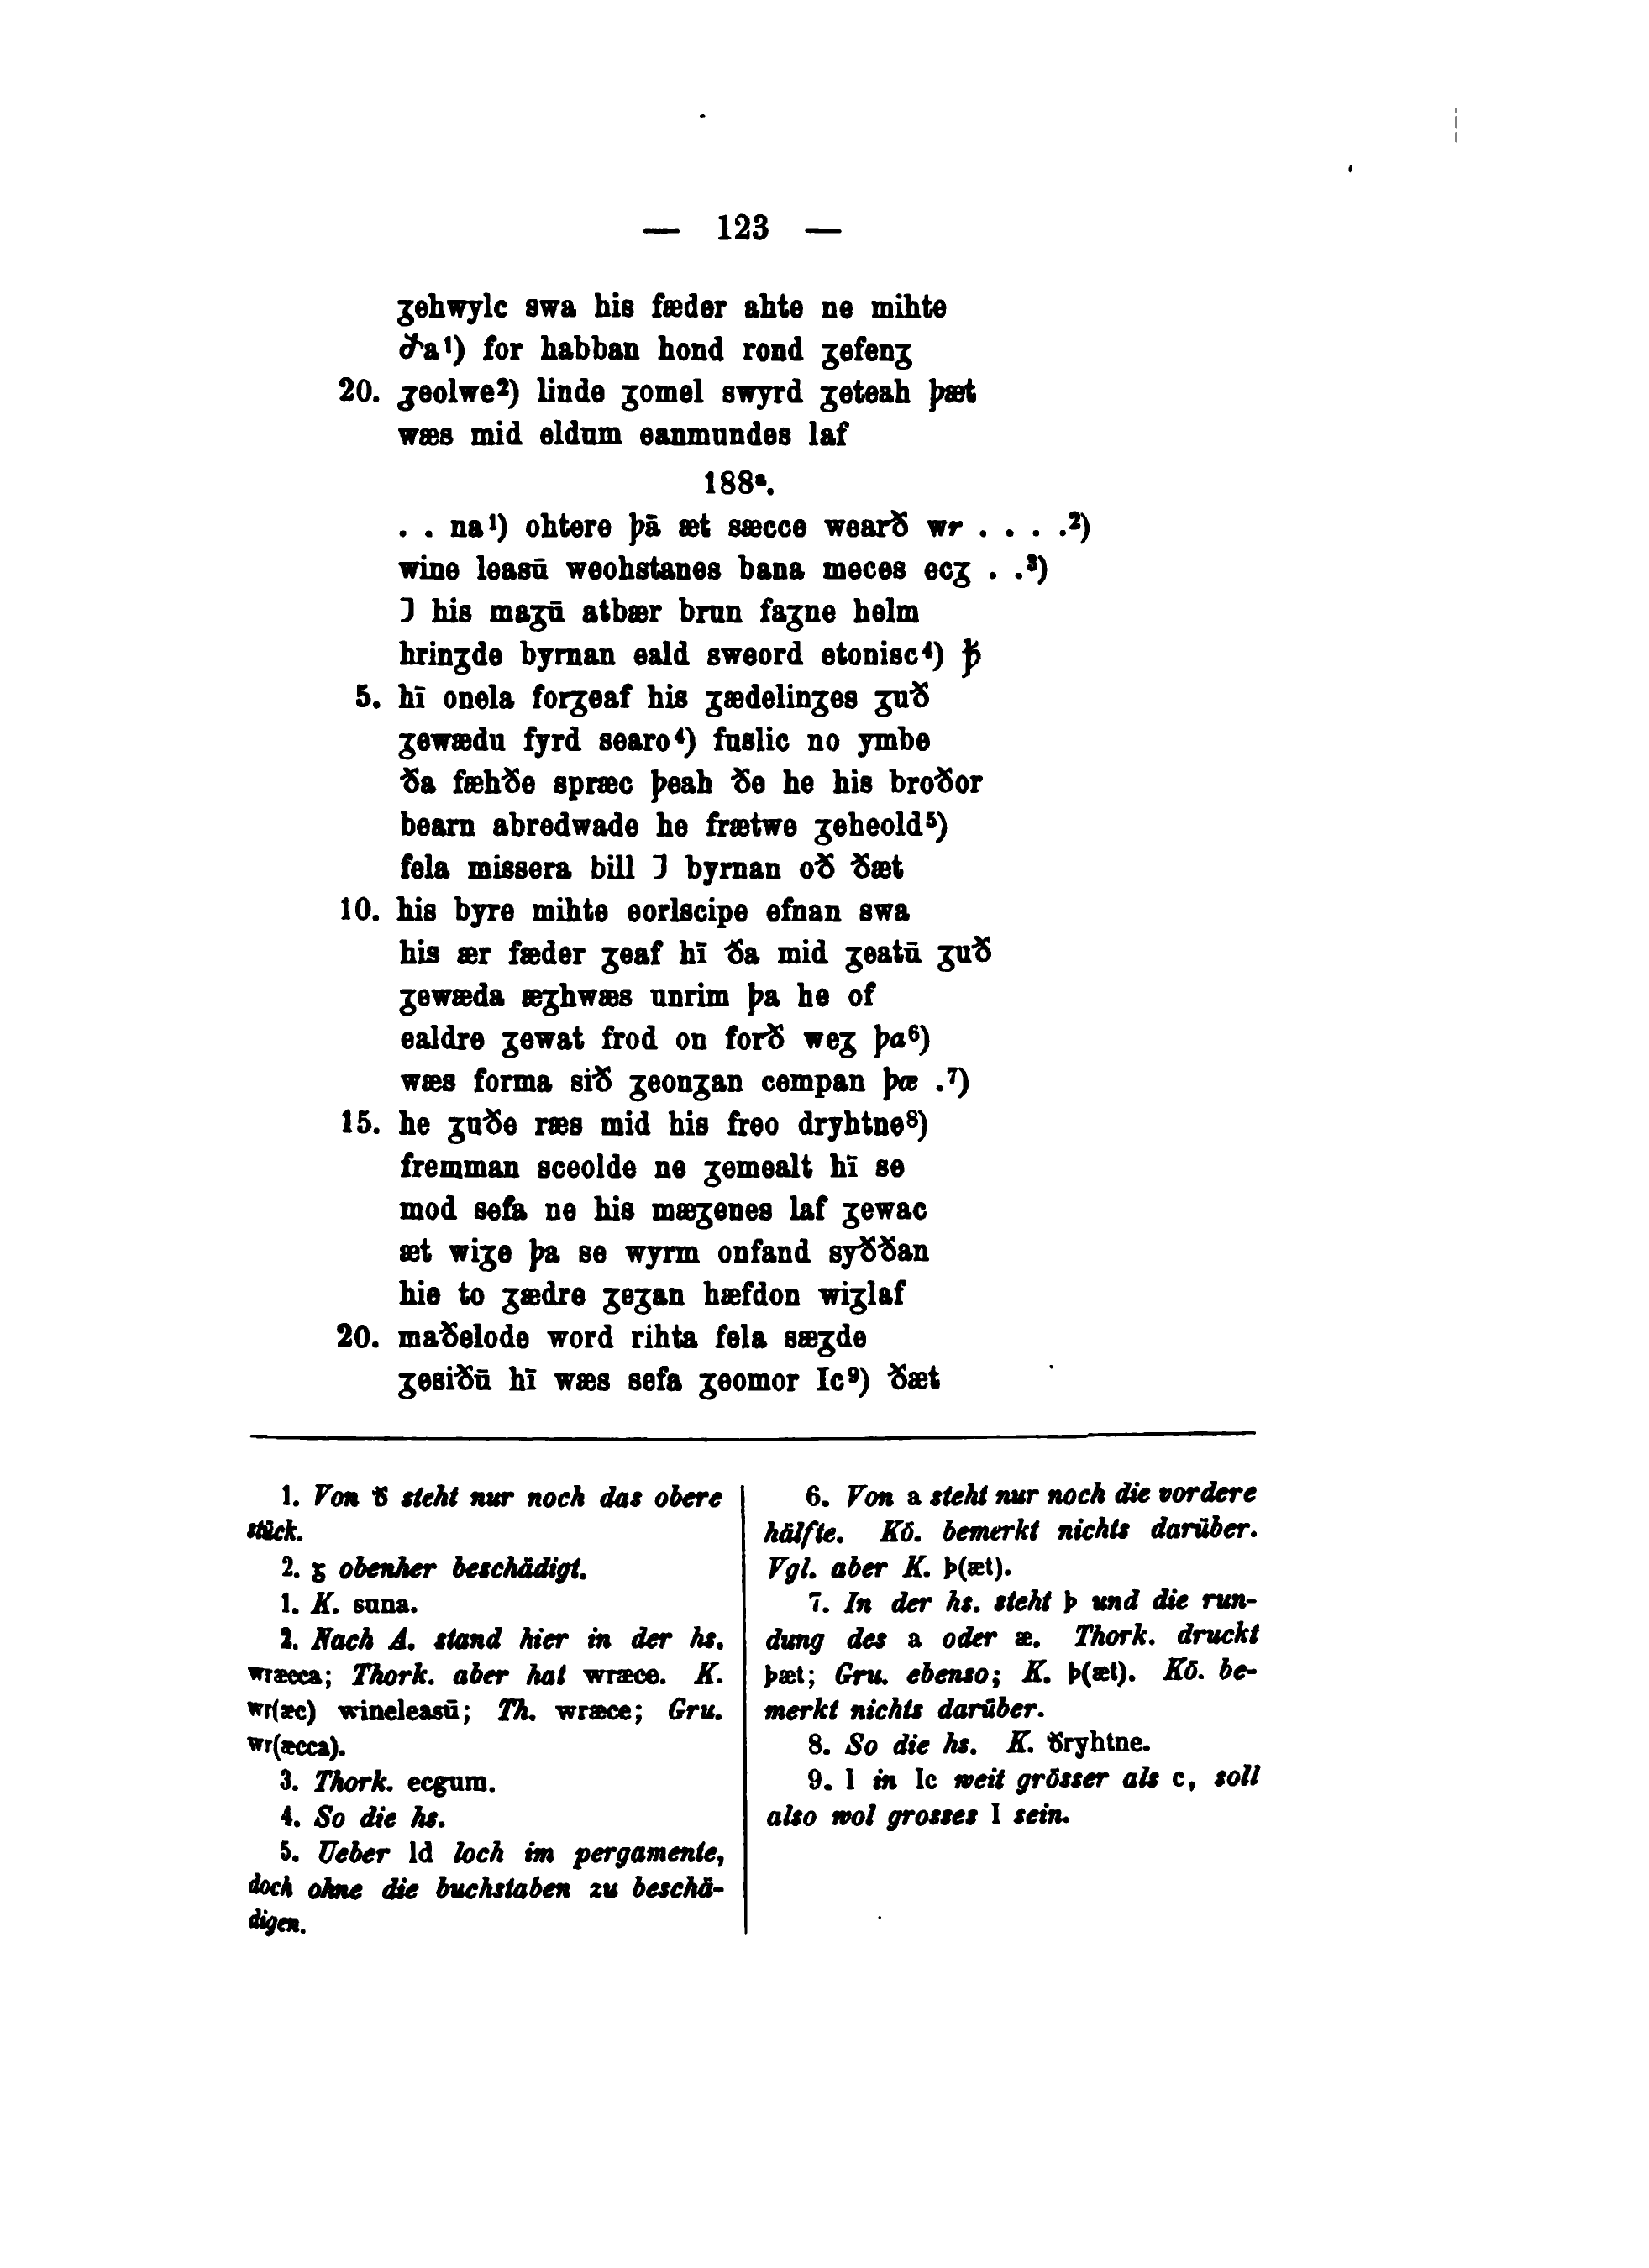 — 123 —
ʒehwylc swa his fæder ahte ne mihte
ða¹) for habban hond rond ʒefenʒ
20. ʒeolwe²) linde ʒomel swyrd ʒeteah þæt
wæs mid eldum eanmundes laf
188ᵃ.
. . na¹) ohtere þā æt sæcce wearð wr . . . .²)
wine leasū weohstanes bana meces ecʒ . .³)
⁊ his maʒū atbær brun faʒne helm
hrinʒde byrnan eald sweord etonisc⁴) ꝥ
5. hī onela forʒeaf his ʒædelinʒes ʒuð
ʒewædu fyrd searo⁴) fuslic no ymbe
ða fæhðe spræc þeah ðe he his broðor
bearn abredwade he frætwe ʒeheold⁵)
fela missera bill ⁊ byrnan oð ðæt
10. his byre mihte eorlscipe efnan swa
his ær fæder ʒeaf hī ða mid ʒeatū ʒuð
ʒewæda æʒhwæs unrim þa he of
ealdre ʒewat frod on forð weʒ þa⁶)
wæs forma sið ʒeonʒan cempan þæ .⁷)
15. he ʒuðe ræs mid his freo dryhtne⁸)
fremman sceolde ne ʒemealt hī se
mod sefa ne his mæʒenes laf ʒewac
æt wiʒe þa se wyrm onfand syððan
hie to ʒædre ʒeʒan hæfdon wiʒlaf
20. maðelode word rihta fela sæʒde
ʒesiðū hī wæs sefa ʒeomor Ic⁹) ðæt
1. Von ð steht nur noch das obere
stück.
2. ʒ obenher beschädigt.
1. K. suna.
2. Nach A. stand hier in der hs.
wræcca; Thork. aber hat wræce. K.
wr(æc) wineleasū; Th. wræce; Gru.
wr(æcca).
3. Thork. ecgum.
4. So die hs.
5. Ueber ld loch im pergamente,
doch ohne die buchstaben zu beschä-
digen.
6. Von a steht nur noch die vordere
hälfte. Kö. bemerkt nichts darüber.
Vgl. aber K. þ(æt).
7. In der hs. steht þ und die run-
dung des a oder æ. Thork. druckt
þæt; Gru. ebenso; K. þ(æt). Kö. be-
merkt nichts darüber.
8. So die hs. K. ðryhtne.
9. I in Ic weit grösser als c, soll
also wol grosses I sein.